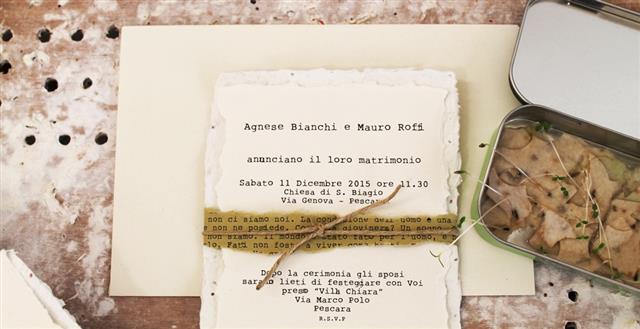 Agnese Bianchi e Mauro Roffi
annunciano il loro matrimonio
Sabato 11 Dicembre 2015 ore 11.30
Chiesa di S. Biagio
Via Genova - Pescara
non ci siamo noi. La condizione dell'uomo è una
e non ne possiede. giovinezza? Un sogno
non siamo. Il mondo stato fatto per l'uomo, e
lo. Fatti non foste a viver come
Dopo la cerimonia gli sposi
saranno lieti di festegiare con Voi
preso "Villa Chiara"
Via Marco Polo
Pescara
R.S.V.P